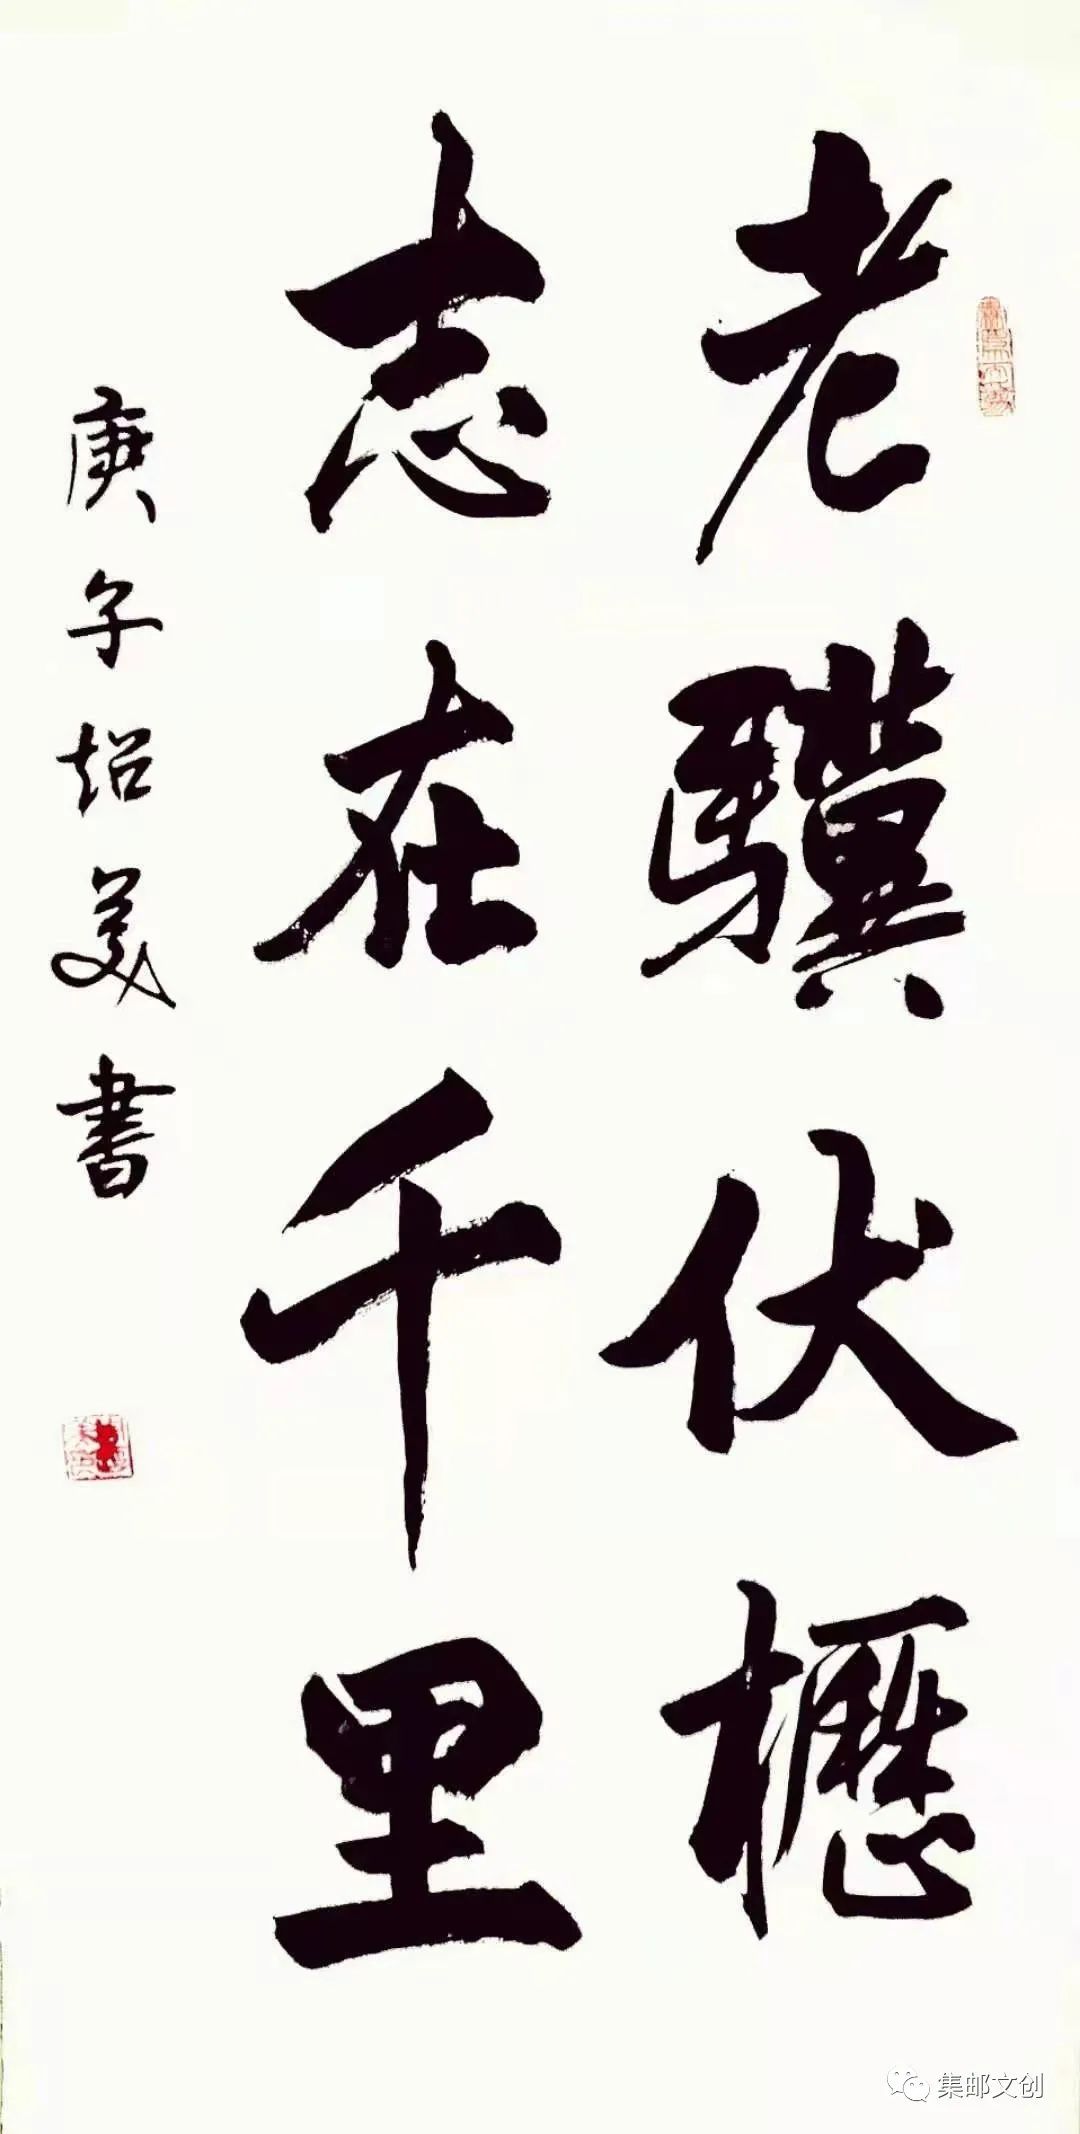 老驥伏櫪
志在千里
庚子紹美書
集邮文创